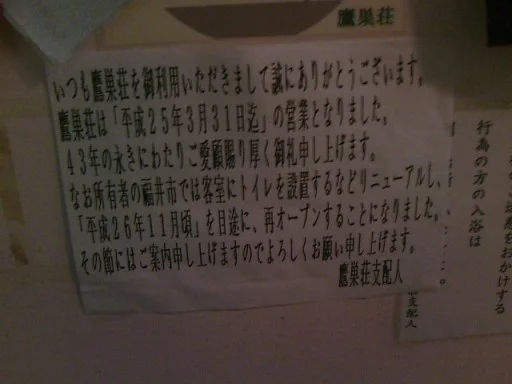 鷹巣荘
いつも鷹巣荘を御利用いただきまして誠にありがとうございます。
鷹巣荘は「平成25年3月31日迄」の営業となりました。
43年の永きにわたりご愛顧賜り厚く御礼申し上げます。
なお所有者の福井市では客室にトイレを設置するなどリニューアルし、
「平成26年11月頃」を目途に、再オープンすることになりました。
その節にはご案内申し上げますのでよろしくお願い申し上げます。
鷹巣荘支配人
をおかけする
行為の方の入浴は
支配人